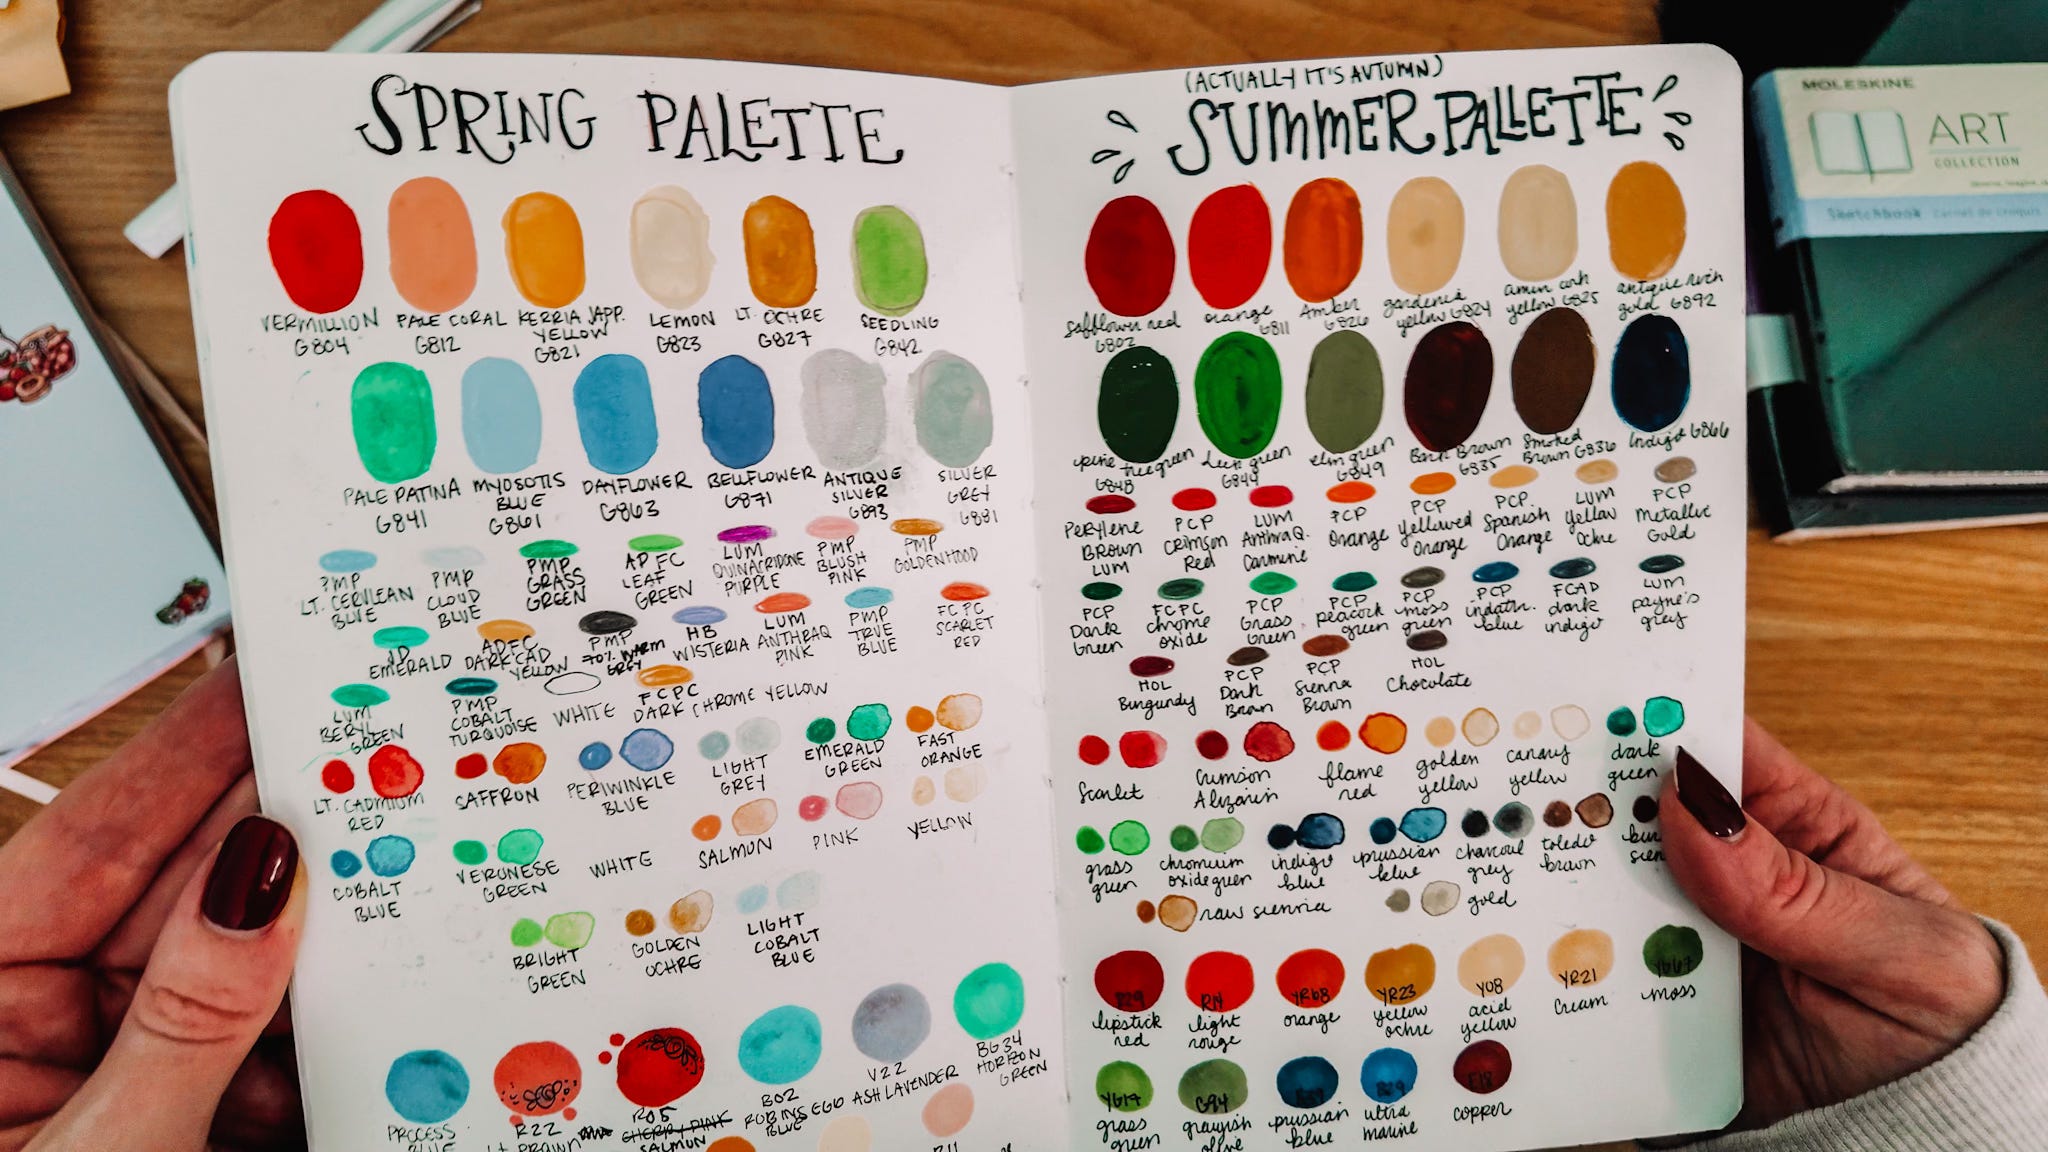 SPRING PALETTE
VERMILLION G804
PALE CORAL G812
KERRIA JAPP. YELLOW G821
LEMON G823
LT. OCHRE G827
SEEDLING G842
PALE PATINA G841
MYOSOTIS BLUE G861
DAYFLOWER G863
BELLFLOWER G871
ANTIQUE SILVER G893
SILVER GREY G881
PMP LT. CERULEAN BLUE
PMP CLOUD BLUE
PMP GRASS GREEN
AP FC LEAF GREEN
LUM QUINACRIDONE PURPLE
PMP BLUSH PINK
PMP GOLDENHOOD
JD EMERALD
ADFC DARK CAD YELLOW
PMP 70% WARM GREY
HB WISTERIA
LUM ANTHRAQ PINK
PMP TRUE BLUE
FC PC SCARLET RED
LUM BERYL GREEN
PMP COBALT TURQUOISE
WHITE
FCPC DARK CHROME YELLOW
LT. CADMIUM RED
SAFFRON
PERIWINKLE BLUE
LIGHT GREY
EMERALD GREEN
FAST ORANGE
COBALT BLUE
VERONESE GREEN
WHITE
SALMON
PINK
YELLOW
BRIGHT GREEN
GOLDEN OCHRE
LIGHT COBALT BLUE
PROCESS BLUE
R22
R05 CHERRY PINK SALMON
B02 ROBINS EGG BLUE
V22 ASH LAVENDER
BG34 HORIZON GREEN
R11
(ACTUALLY IT'S AUTUMN)
SUMMER PALLETTE
Safflower red G802
orange G811
Amber G826
gardenia yellow G824
yellow G825
antique rich gold G892
pine tree green G848
deep green G844
elm green G849
Bark Brown G835
Smoked Brown G836
Indigo G866
PERYLENE BROWN LUM
PCP CRIMSON Red
LUM Anthraq. Carmine
PCP Orange
PCP Yellowed Orange
PCP Spanish Orange
LUM yellow Ochre
PCP Metallic Gold
PCP Dark Green
FCPC chrome oxide
PCP Grass Green
PCP peacock green
PCP moss green
PCP indathr. blue
FCAD dark indigo
LUM payne's grey
HOL Burgundy
PCP Dark Brown
PCP Sienna Brown
HOL Chocolate
Scarlet
Crimson Alizarin
flame red
golden yellow
canary yellow
dark green
grass green
chromium oxide green
indigo blue
prussian blue
charcoal grey
toledo brown
raw siennia
gold
R29 lipstick red
R14 light rouge
YR68 orange
YR23 yellow ochre
Y08 acid yellow
YR21 Cream
YG67 moss
YG17 grass green
G94 greyish olive
prussian blue
B29 ultra marine
E18 copper
MOLESKINE
ART
COLLECTION
Sketchbook Carnet de croquis